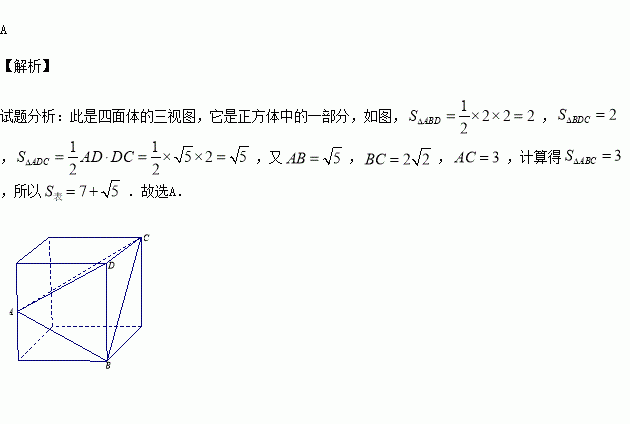 A
【解析】
试题分析：此是四面体的三视图，它是正方体中的一部分，如图，S_{ΔABD}=\frac{1}{2}×2×2=2，S_{ΔBDC}=2
，S_{ΔADC}=\frac{1}{2}AD·DC=\frac{1}{2}×\sqrt{5}×2=\sqrt{5}，又AB=\sqrt{5}，BC=2\sqrt{2}，AC=3，计算得S_{ΔABC}=3
,所以S_{表}=7+\sqrt{5}．故选A．
C
D
A
B